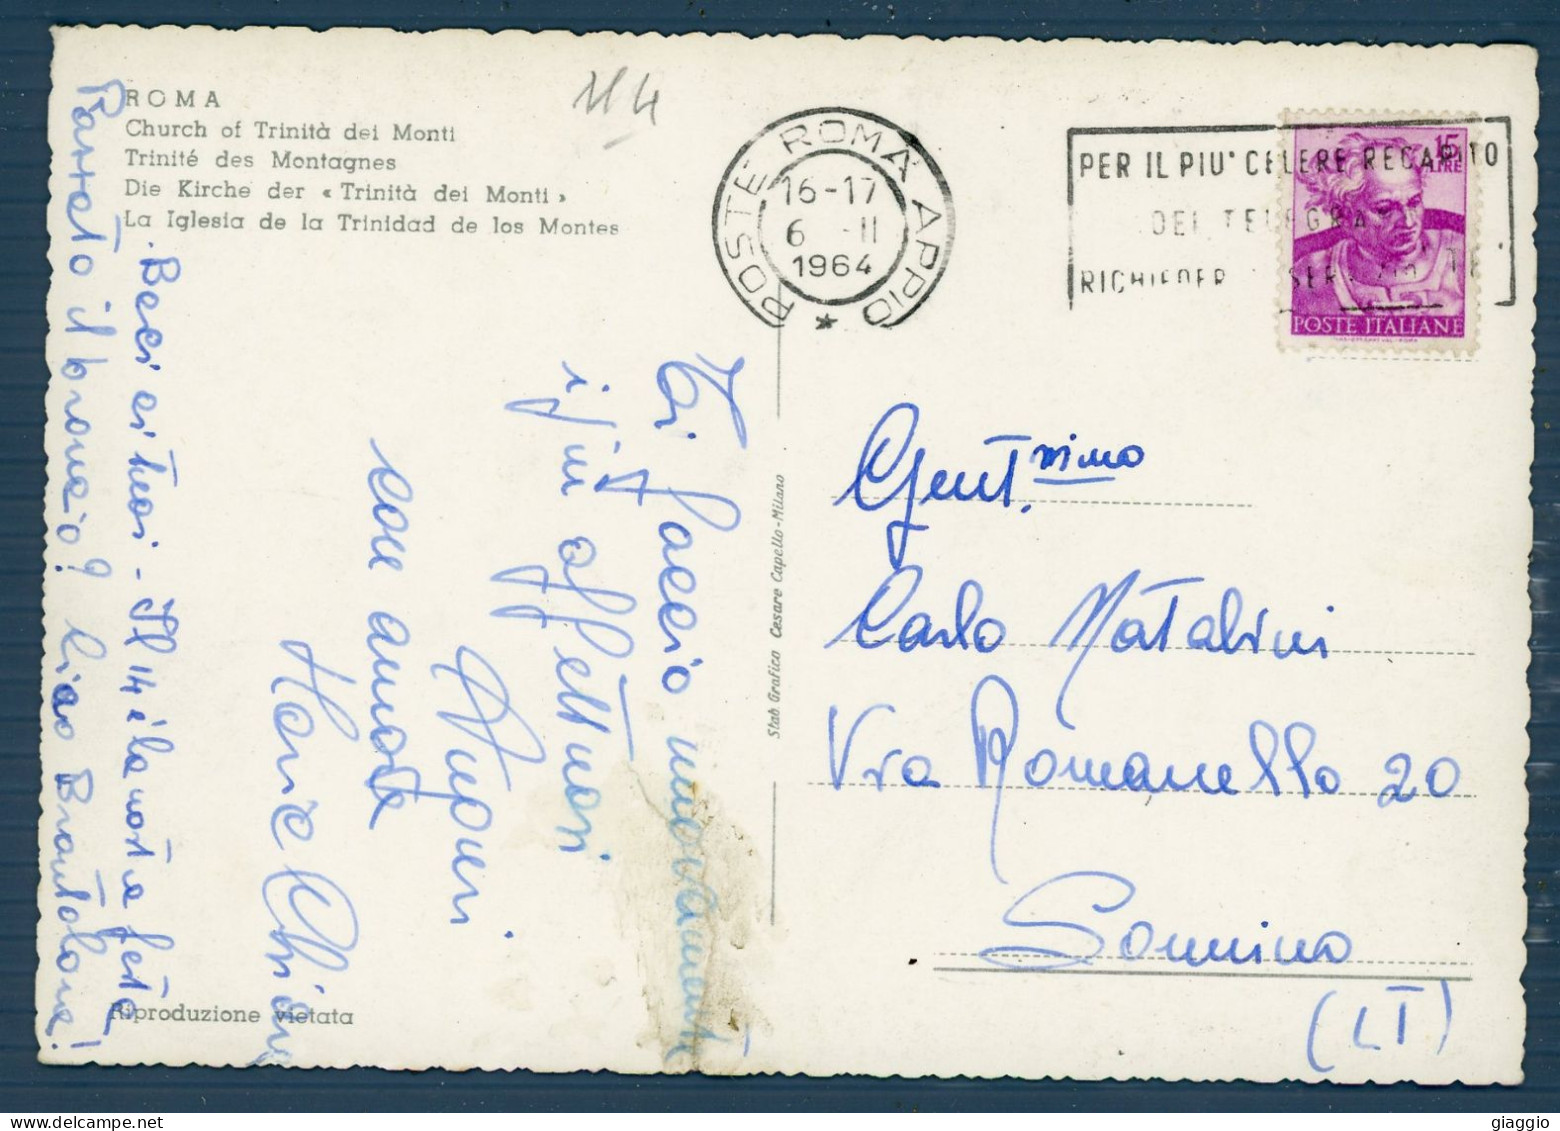 ROMA
Church of Trinità dei Monti
Trinité des Montagnes
Die Kirche der « Trinità dei Monti »
La Iglesia de la Trinidad de los Montes
POSTE ROMA APPIO
16-17
6 -II
1964
PER IL PIU' CELERE RECAPITO
DEI TELEGRA
RICHIEDER SER
15
LIRE
POSTE ITALIANE
Gent.ssimo
Carlo Natalini
Via Romanello 20
Sonnino
(LT)
Stab Grafico Cesare Capello-Milano
Vi faccio nuovamente
i più affettuosi
Auguri
con amore
Maria Chiara
Baci citosi - Il 14 è la nostra festa
Passato il broncio? Ciao Brontolone!
Riproduzione vietata
giaggio